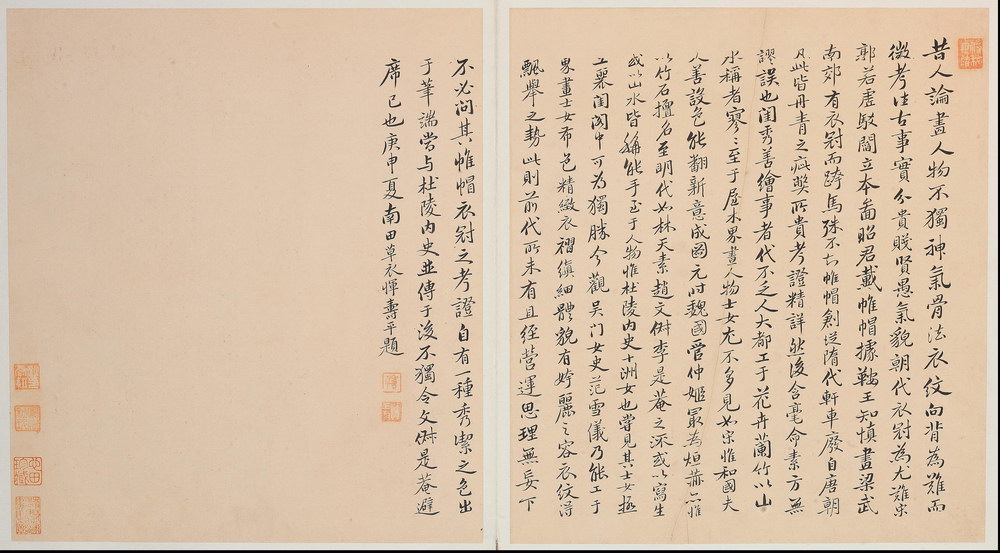 昔人論畫人物不獨神氣骨法衣紋向背為難而
微考往古事實分貴賤賢愚氣貌朝代衣冠為尤難宋
郭若虛駁閻立本畵昭君戴帷帽據鞍王知慎畫梁武
南郊有衣冠而跨馬殊不知帷帽創從隋代軒車廢自唐朝
凡此皆丹青之疵獘所貴考證精詳然後含毫命素方無
謬誤也閨秀善繪事者代不乏人大都工于花卉蘭竹以山
水稱者寥〻至于屋木界畫人物士女尤不多見如宋惟和國夫
人善設色能翻新意成國元时魏國管仲姬最為烜赫亦惟
以竹石擅名至明代如林天素趙文俶李是菴之流或以寫生
或以山水皆稱能手至于人物惟杜陵內史十洲女也嘗見其士女極
工麗閨閣中可為獨勝今觀吳门女史范雪儀乃能工于
界畫士女布色精緻衣褶縝細體貌有姱麗之容衣紋得
飄舉之勢此則前代所未有且經營運思理無妄下
不必问其帷帽衣冠之考證自有一種秀潔之色出
于筆端當与杜陵內史並傳于後不獨令文俶是菴避
席已也庚申夏南田草衣惲壽平題